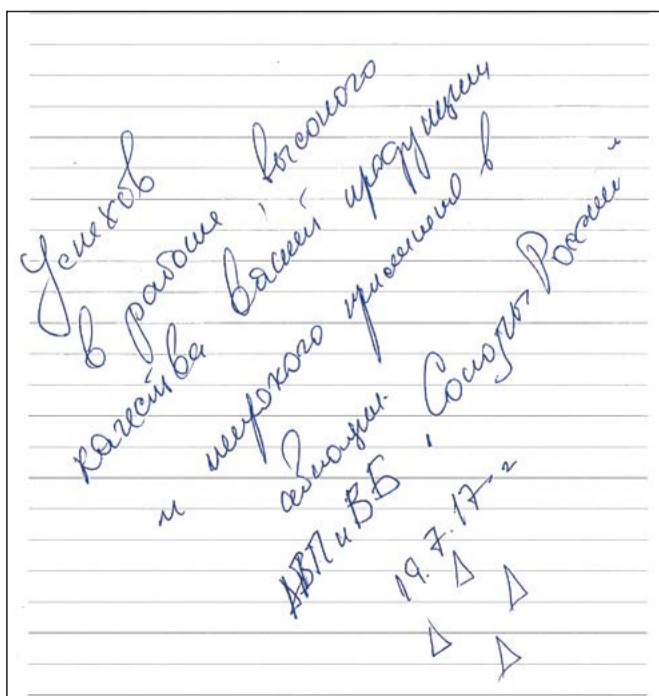 Успехов
в работе, высокого
качества Вашей продукции
и широкого применения в
авиации.
АВП и ВБ, Союзы России
19.7.17 г